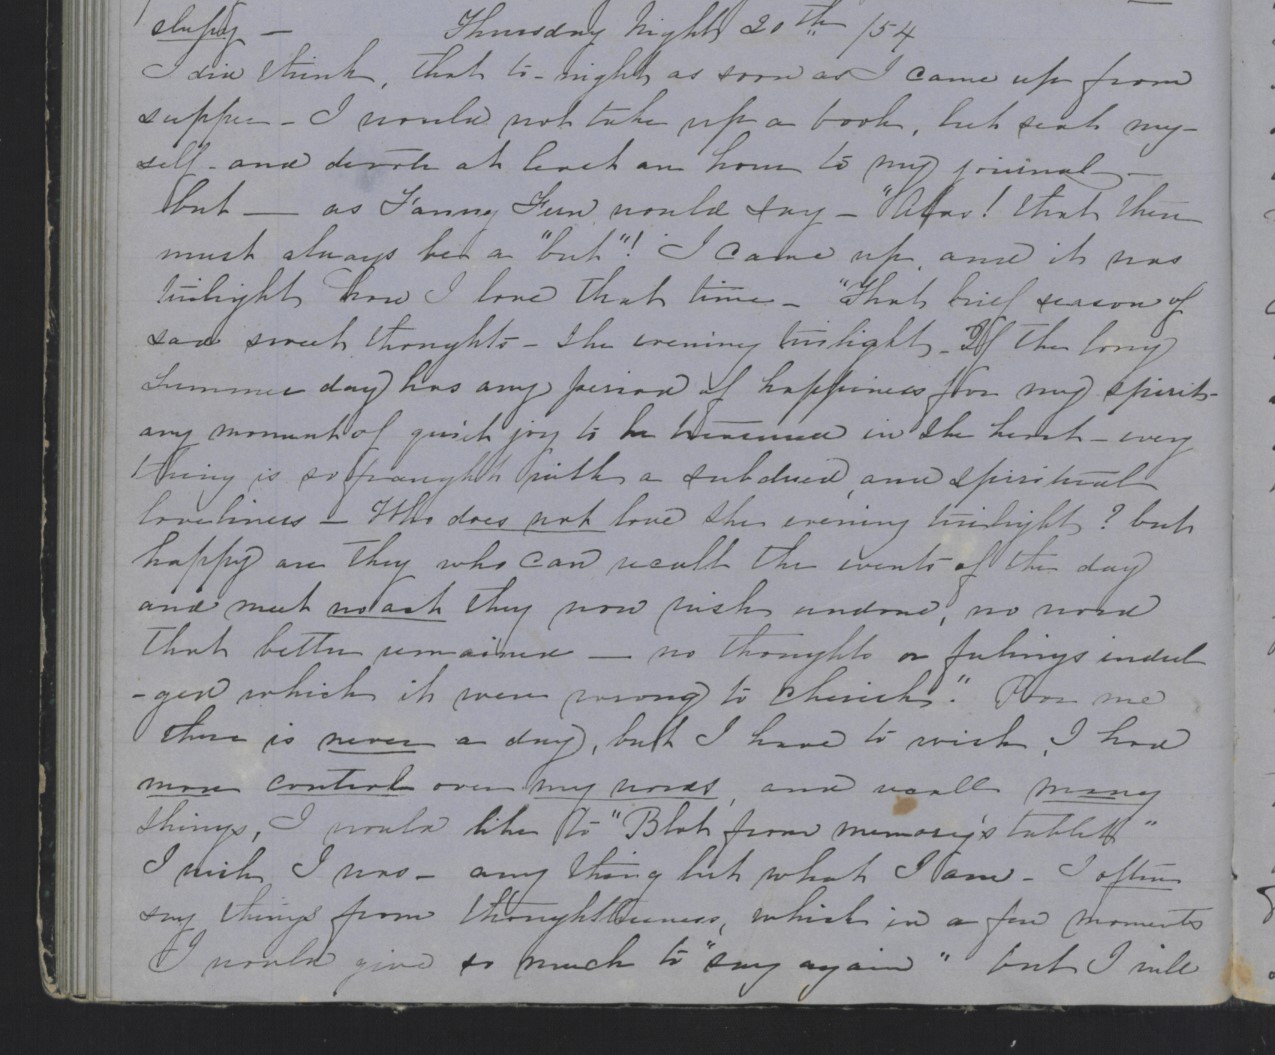 sleepy — Thursday Night 20th /54
I did think, that to-night, as soon as I came up from
supper - I would not take up a book, but seat my-
self - and devote at least an hour to my journal -
but — as Fanny Fern would say - "Alas! that there
must always be a "but"! I came up, and it was
twilight, how I love that time - "That brief season of
sad sweet thoughts - the evening twilight - If the long
Summer day has any period of happiness for my spirit -
any moment of quiet joy to be treasured in the heart - every
thing is so fraught with a subdued, and spiritual
loveliness - Who does not love the evening twilight? but
happy are they who can recall the events of the day
and meet no act they now wish undone, no word
that better remained — no thoughts or feelings indul
-ged which it were wrong to cherish." Poor me
there is never a day, but I have to wish, I had
more control over my words, and recall many
things, I would like to "Blot from memory's tablet"
I wish I was - any thing but what I am - I often
say things from thoughtlessness, which in a few moments
I would give so much to "say again" but I will